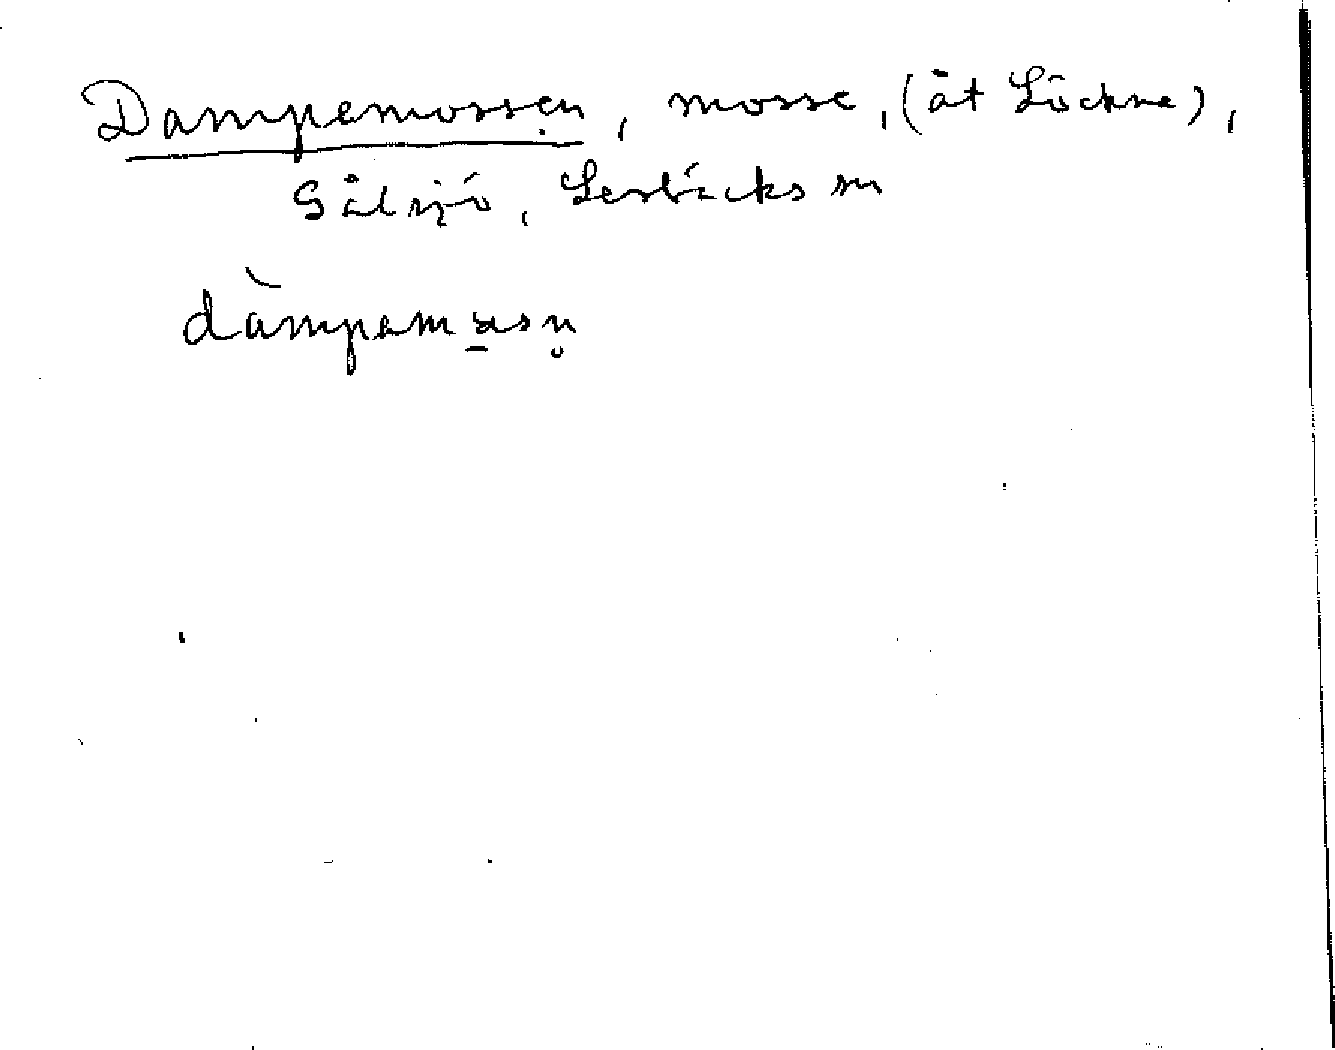 Dampemossen, mosse, (åt Löckne),
Gålsjö, Lerbäcks sn
dàmpam